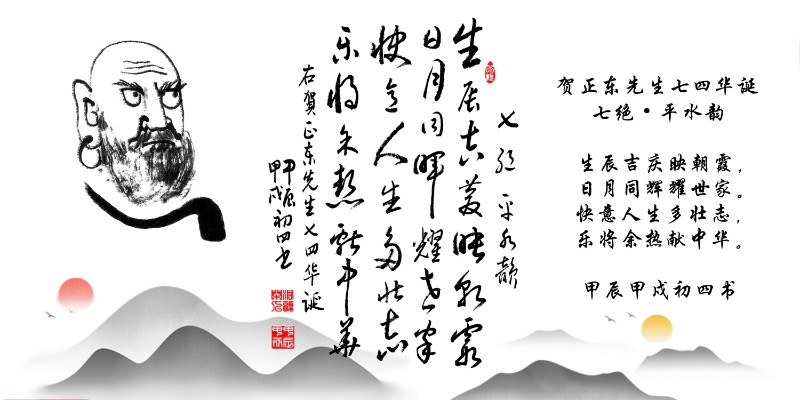 七絕 平水韻
生辰吉慶映朝霞
日月同暉耀世家
快意人生多壯志
樂將余熱獻中華
右賀正东先生七四华诞
甲辰甲戌初四书
贺正东先生七四华诞
七绝·平水韵
生辰吉庆映朝霞，
日月同辉耀世家。
快意人生多壮志，
乐将余热献中华。
甲辰甲戌初四书